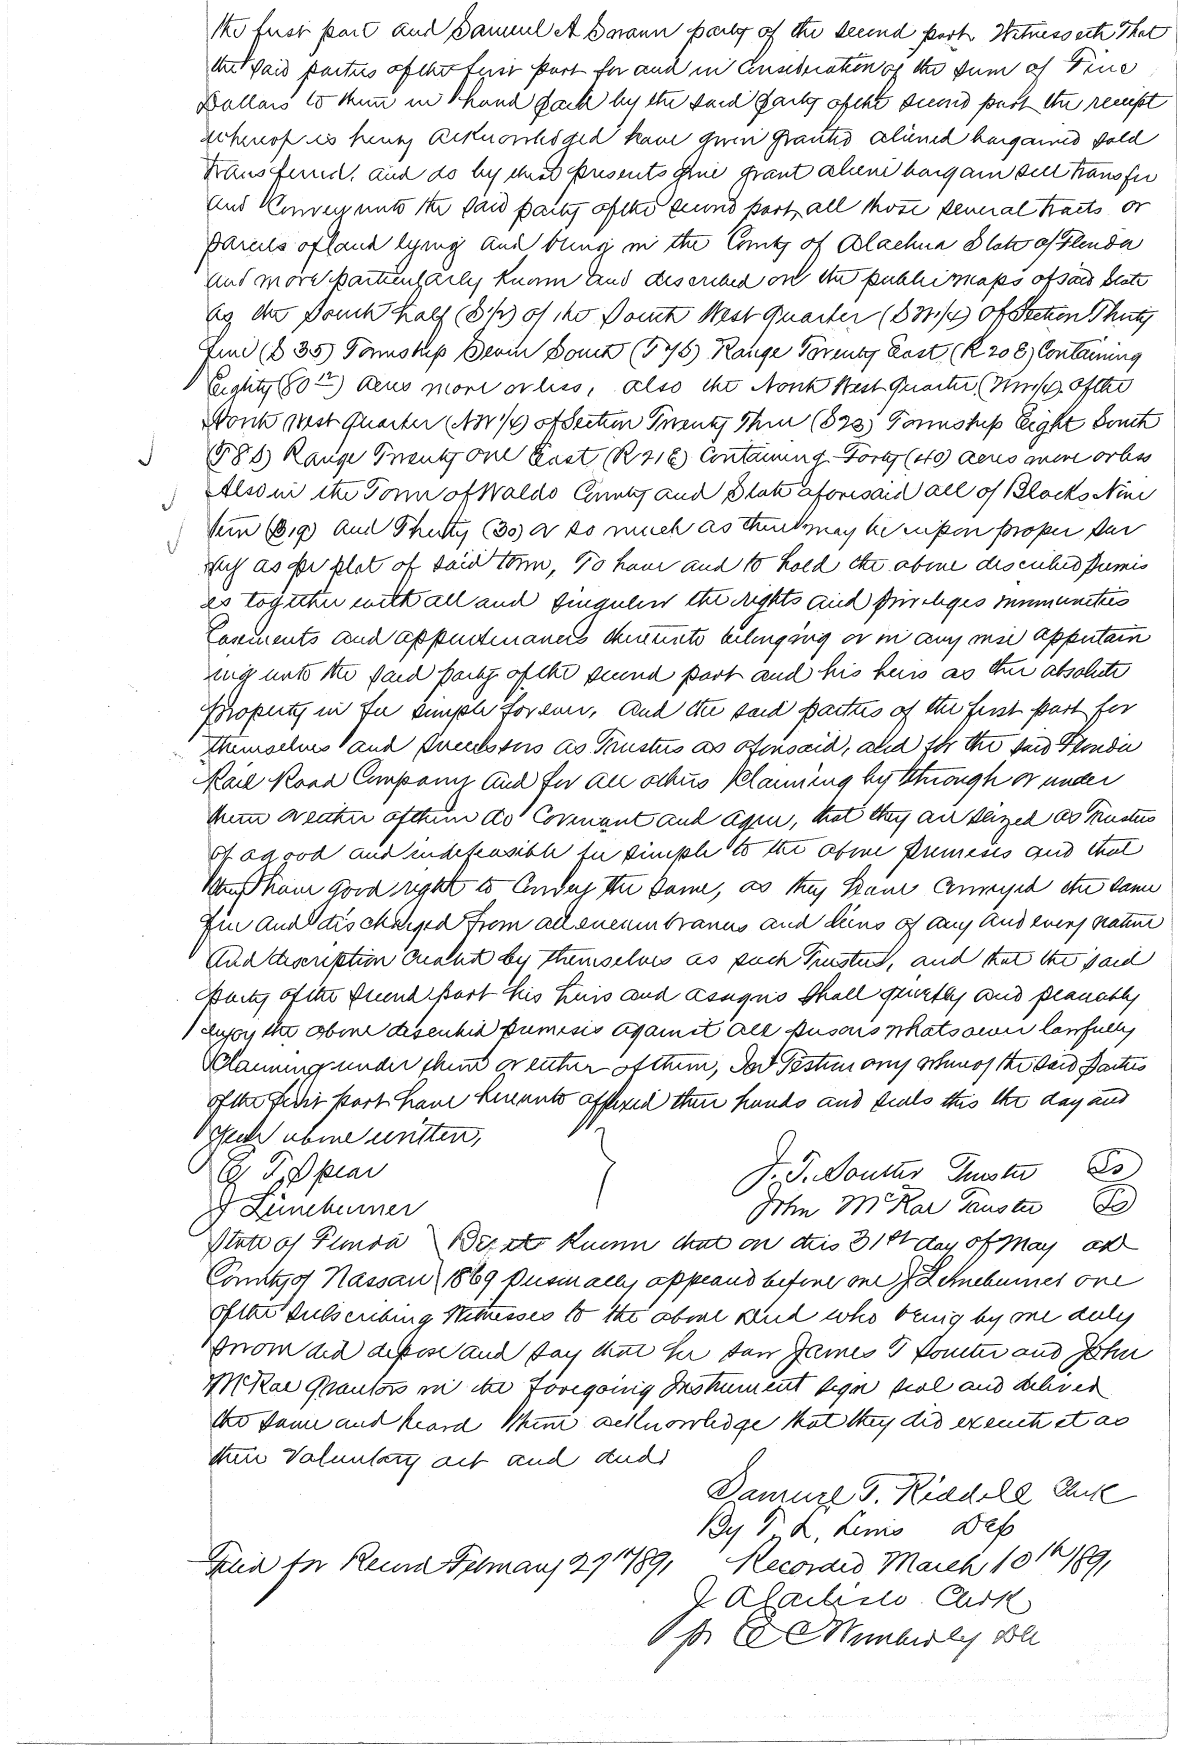 the first part and Samuel A Swann party of the second part, Witnesseth That
the said parties of the first part for and in consideration of the sum of Five
Dollars to them in hand paid by the said party of the second part the receipt
whereof is hereby acknowledged have given granted aliened bargained sold
transferred, and do by these presents give grant alien bargain sell transfer
and Convey unto the said party of the second part, all those several tracts or
parcels of land lying and being in the County of Alachua State of Florida
and more particularly known and described on the public maps of said State
as the South half (S½) of the South West Quarter (SW¼) Of Section Thirty
five (S 35) Township Seven South (T7S) Range Twenty East (R 20 E) Containing
Eighty (80) acres more or less, also the North West Quarter (NW¼) of the
North West Quarter (NW¼) of Section Twenty Three (S23) Township Eight South
(T8S) Range Twenty one East (R 21 E) Containing Forty (40) acres more or less
Also in the Town of Waldo County and State aforesaid all of Blocks Nine
teen (B19) and Thirty (30) or so much as there may be upon proper sur
vey as per plat of said town, To have and to hold the above described premis
es together with all and singular the rights and privileges immunities
Easements and appurtenances thereunto belonging or in any wise appertain
ing unto the said party of the second part and his heirs as their absolute
property in fee simple forever, And the said parties of the first part for
themselves and successors as Trustees as aforesaid, and for the said Florida
Rail Road Company and for all others Claiming by through or under
them or either of them do Covenant and agree, that they are seized as Trustees
of a good and indefeasible fee simple to the above premises and that
they have good right to Convey the same, as they have Conveyed the same
free and discharged from all encumbrances and liens of any and every nature
And description created by themselves as such Trustees, and that the said
party of the second part his heirs and assigns shall quietly and peaceably
enjoy the above described premises against all persons whatsoever lawfully
Claiming under them or either of them, In Testimony whereof the said parties
of the first part have hereunto affixed their hands and seals this the day and
year above written,
E T. Spear J. T. Soutter Trustee Ls
J Lineburner John McRae Trustee Ls
State of Florida Be it Known that on this 31st day of May AD
County of Nassau 1869 personally appeared before me J Lineburner one
of the subscribing Witnesses to the above deed who being by me duly
sworn did depose and say that he saw James T Soutter and John
McRae Grantors in the foregoing Instrument sign seal and deliver
the same and heard them acknowledge that they did execute it as
their Voluntary act and deed,
Samuel T. Riddell Clerk
By T. L. Lewis Dep
Filed for Record February 27th 1891 Recorded March 10th 1891,
J A Carlisle Clerk
pr E C Wimberly DC